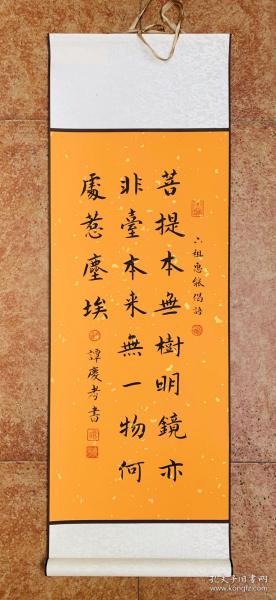 六祖惠能偈語
菩提本無樹明鏡亦
非臺本来無一物何
處惹塵埃
譚慶孝書
孔夫子旧书网